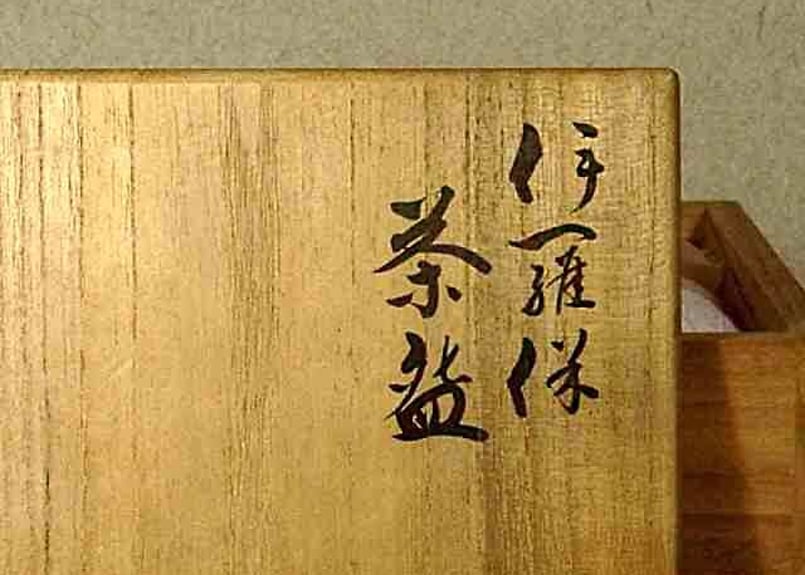 伊羅保
茶盌